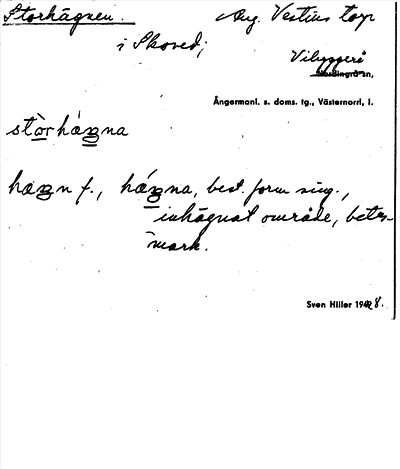 Storhägnen. Ång. Vestius torp
i Skoved;
Vibyggerå
sn,
Ångermanl. s. doms. tg., Västernorrl. l.
stòrhæ̀gna
hægn f., hǽgna, best. form sing.,
inhägnat område, betes-
mark.
Sven Hiller 1948.